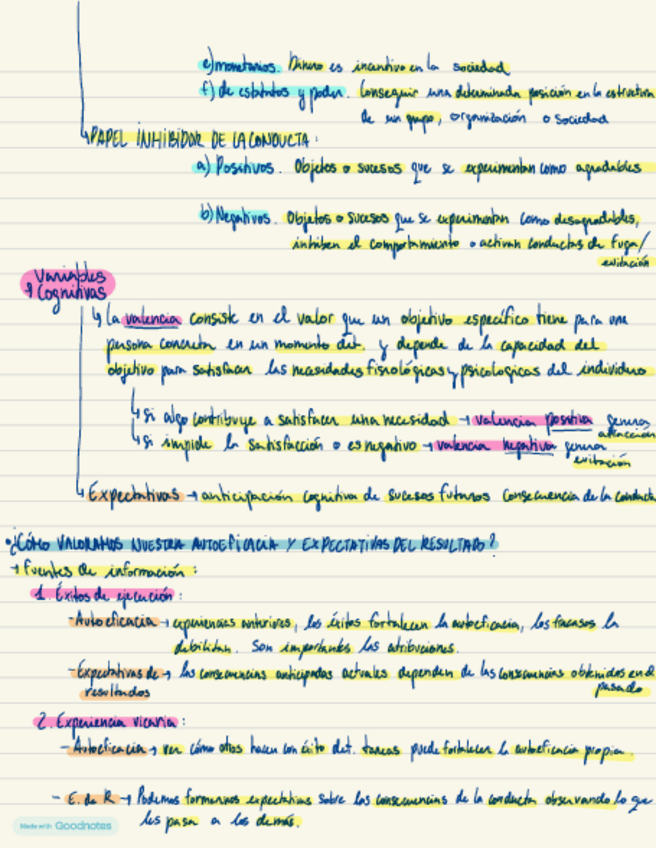 e) monetarios. Dinero es incentivo en la sociedad
f) de estatutos y poder. Conseguir una determinada posición en la estructura
de un grupo, organización o sociedad
PAPEL INHIBIDOR DE LA CONDUCTA:
a) Positivos. Objetos o sucesos que se experimentan como agradables
b) Negativos. Objetos o sucesos que se experimentan como desagradables,
inhiben el comportamiento o activan conductas de fuga/
evitación
Variables
Cognitivas
La valencia consiste en el valor que un objetivo específico tiene para una
persona concreta en un momento det. y depende de la capacidad del
objetivo para satisfacer las necesidades fisiológicas y psicologicas del individuo
Si algo contribuye a satisfacer una necesidad → valencia positiva genera
atracción
Si impide la satisfacción o es negativo → valencia negativa genera
evitación
Expectativas → anticipación cognitiva de sucesos futuros consecuencia de la conducta
• ¿CÓMO VALORAMOS NUESTRA AUTOEFICACIA Y EXPECTATIVAS DEL RESULTADO?
→ Fuentes de información:
1. Éxitos de ejecución:
- Autoeficacia → experiencias anteriores, los éxitos fortalecen la autoeficacia, los fracasos la
debilitan. Son importantes las atribuciones.
- Expectativas de → las consecuencias anticipadas actuales dependen de las consecuencias obtenidas en el
resultados pasado
2. Experiencia vicaria:
- Autoeficacia → ver cómo otros hacen con éxito det. tareas puede fortalecer la autoeficacia propia.
- E. de R → Podemos formarnos expectativas sobre las consecuencias de la conducta observando lo que
les pasa a los demás.
Made with Goodnotes